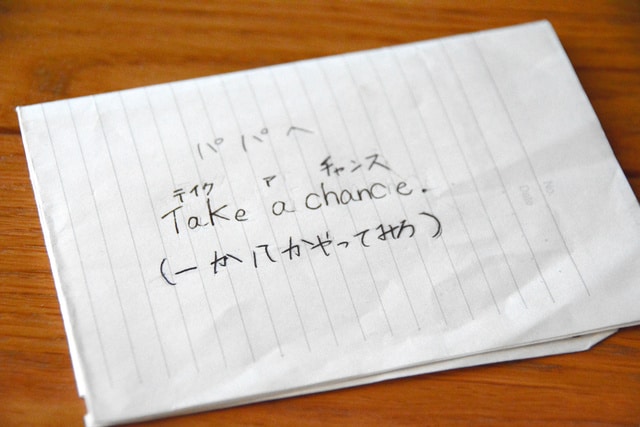 パパへ
テイク ア チャンス
Take a chance.
(一か八かやってみろ)
No
Date